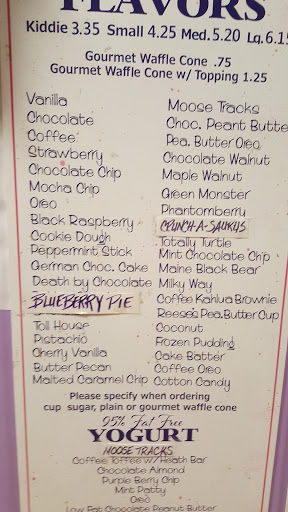 FLAVORS
Kiddie 3.35 Small 4.25 Med. 5.20 Lg. 6.15
Gourmet Waffle Cone .75
Gourmet Waffle Cone w/ Topping 1.25
Vanilla
Chocolate
Coffee
Strawberry
Chocolate Chip
Mocha Chip
Oreo
Black Raspberry
Cookie Dough
Peppermint Stick
German Choc. Cake
Death by Chocolate
BLUEBERRY PIE
Toll House
Pistachio
Cherry Vanilla
Butter Pecan
Malted Caramel Chip
Moose Tracks
Choc. Peant Butte
Pea. Butter Oreo
Chocolate Walnut
Maple Walnut
Green Monster
Phantomberry
CRUNCH-A-SAURUS
Totally Turtle
Mint Chocolate Chip
Maine Black Bear
Milky Way
Coffee Kahlua Brownie
Reese's Pea. Butter Cup
Coconut
Frozen Pudding
Cake Batter
Coffee Oreo
Cotton Candy
Please specify when ordering
cup sugar, plain or gourmet waffle cone
95% Fat Free
YOGURT
MOOSE TRACKS
Coffee Toffee w/Heath Bar
Chocolate Almond
Purple Berry Chip
Mint Patty
Oreo
Low Fat Chocolate Peanut Butter